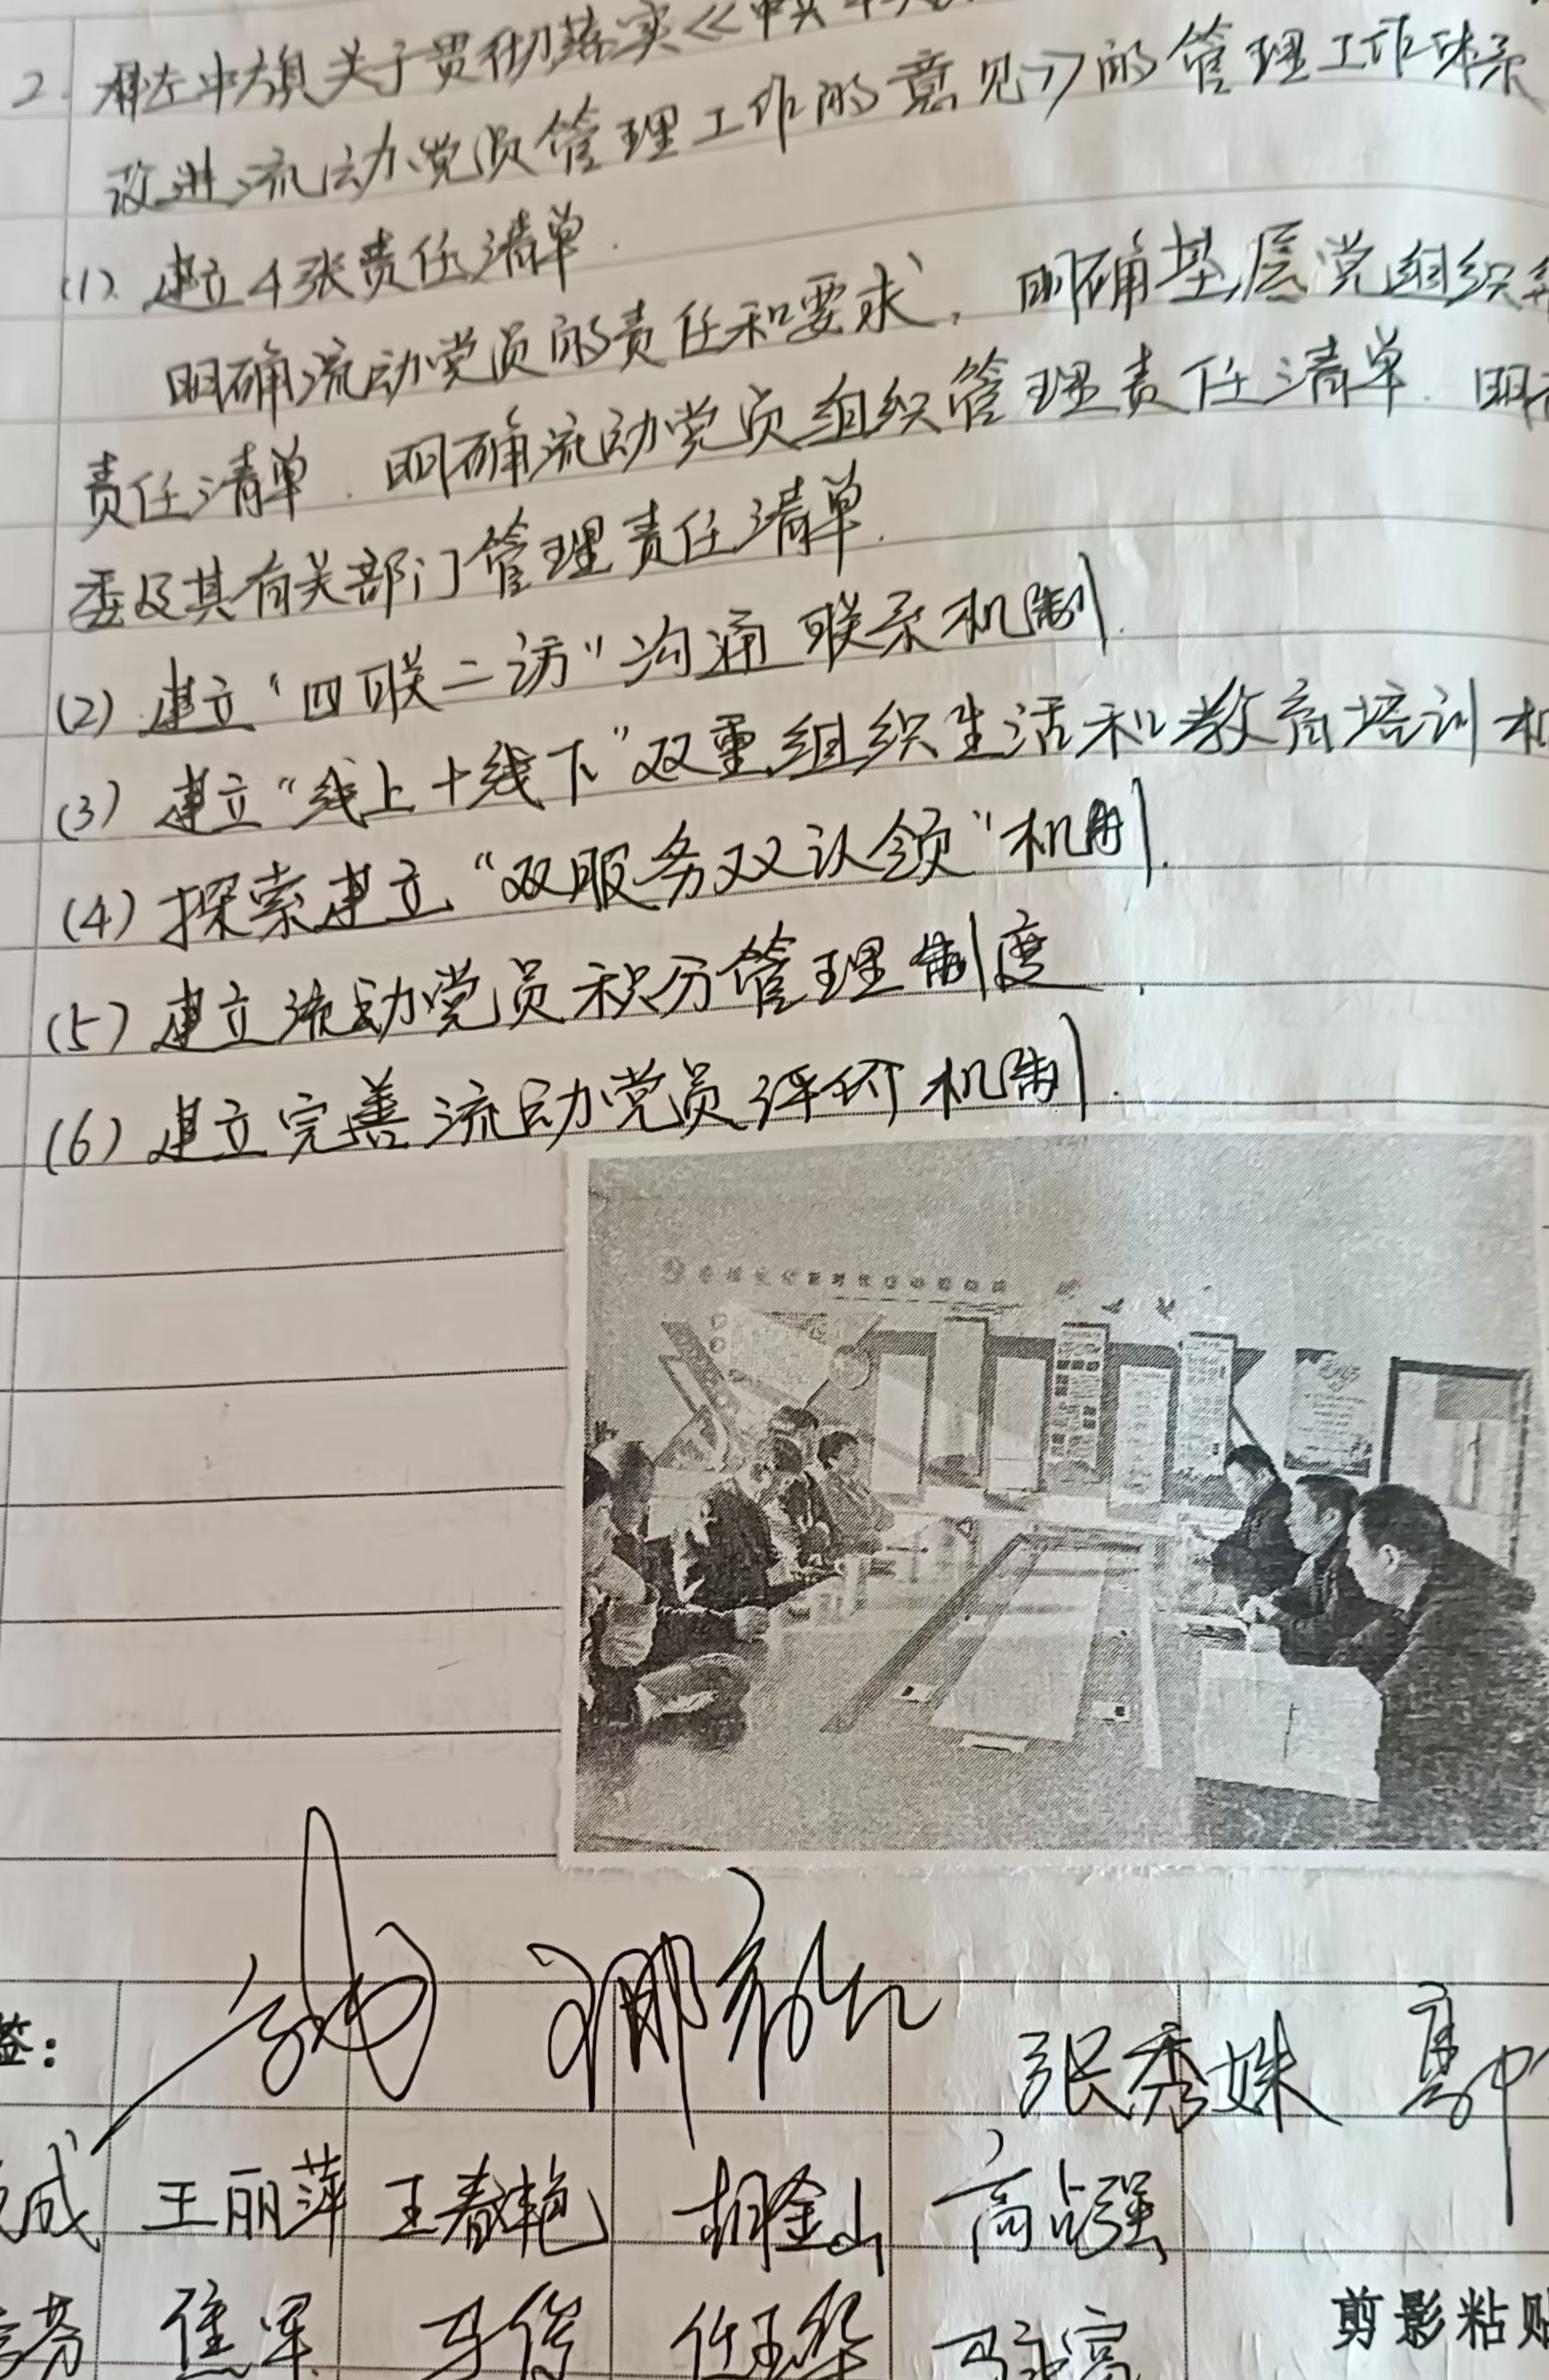 2. 科左中旗关于贯彻落实《中共中央
改进流动党员管理工作的意见》的管理工作体系
(1). 建立4张责任清单.
明确流动党员的责任和要求, 明确基层党组织
责任清单. 明确流动党员组织管理责任清单. 明
委及其有关部门管理责任清单.
(2) 建立“四联二访”沟通联系机制.
(3) 建立“线上+线下”双重组织生活和教育培训机
(4) 探索建立“双服务双认领”机制.
(5) 建立流动党员积分管理制度.
(6) 建立完善流动党员评价机制.
签:
张秀姝
成 王丽萍 王春艳 胡金山 高占强
芬 焦军 马俊
剪影粘贴